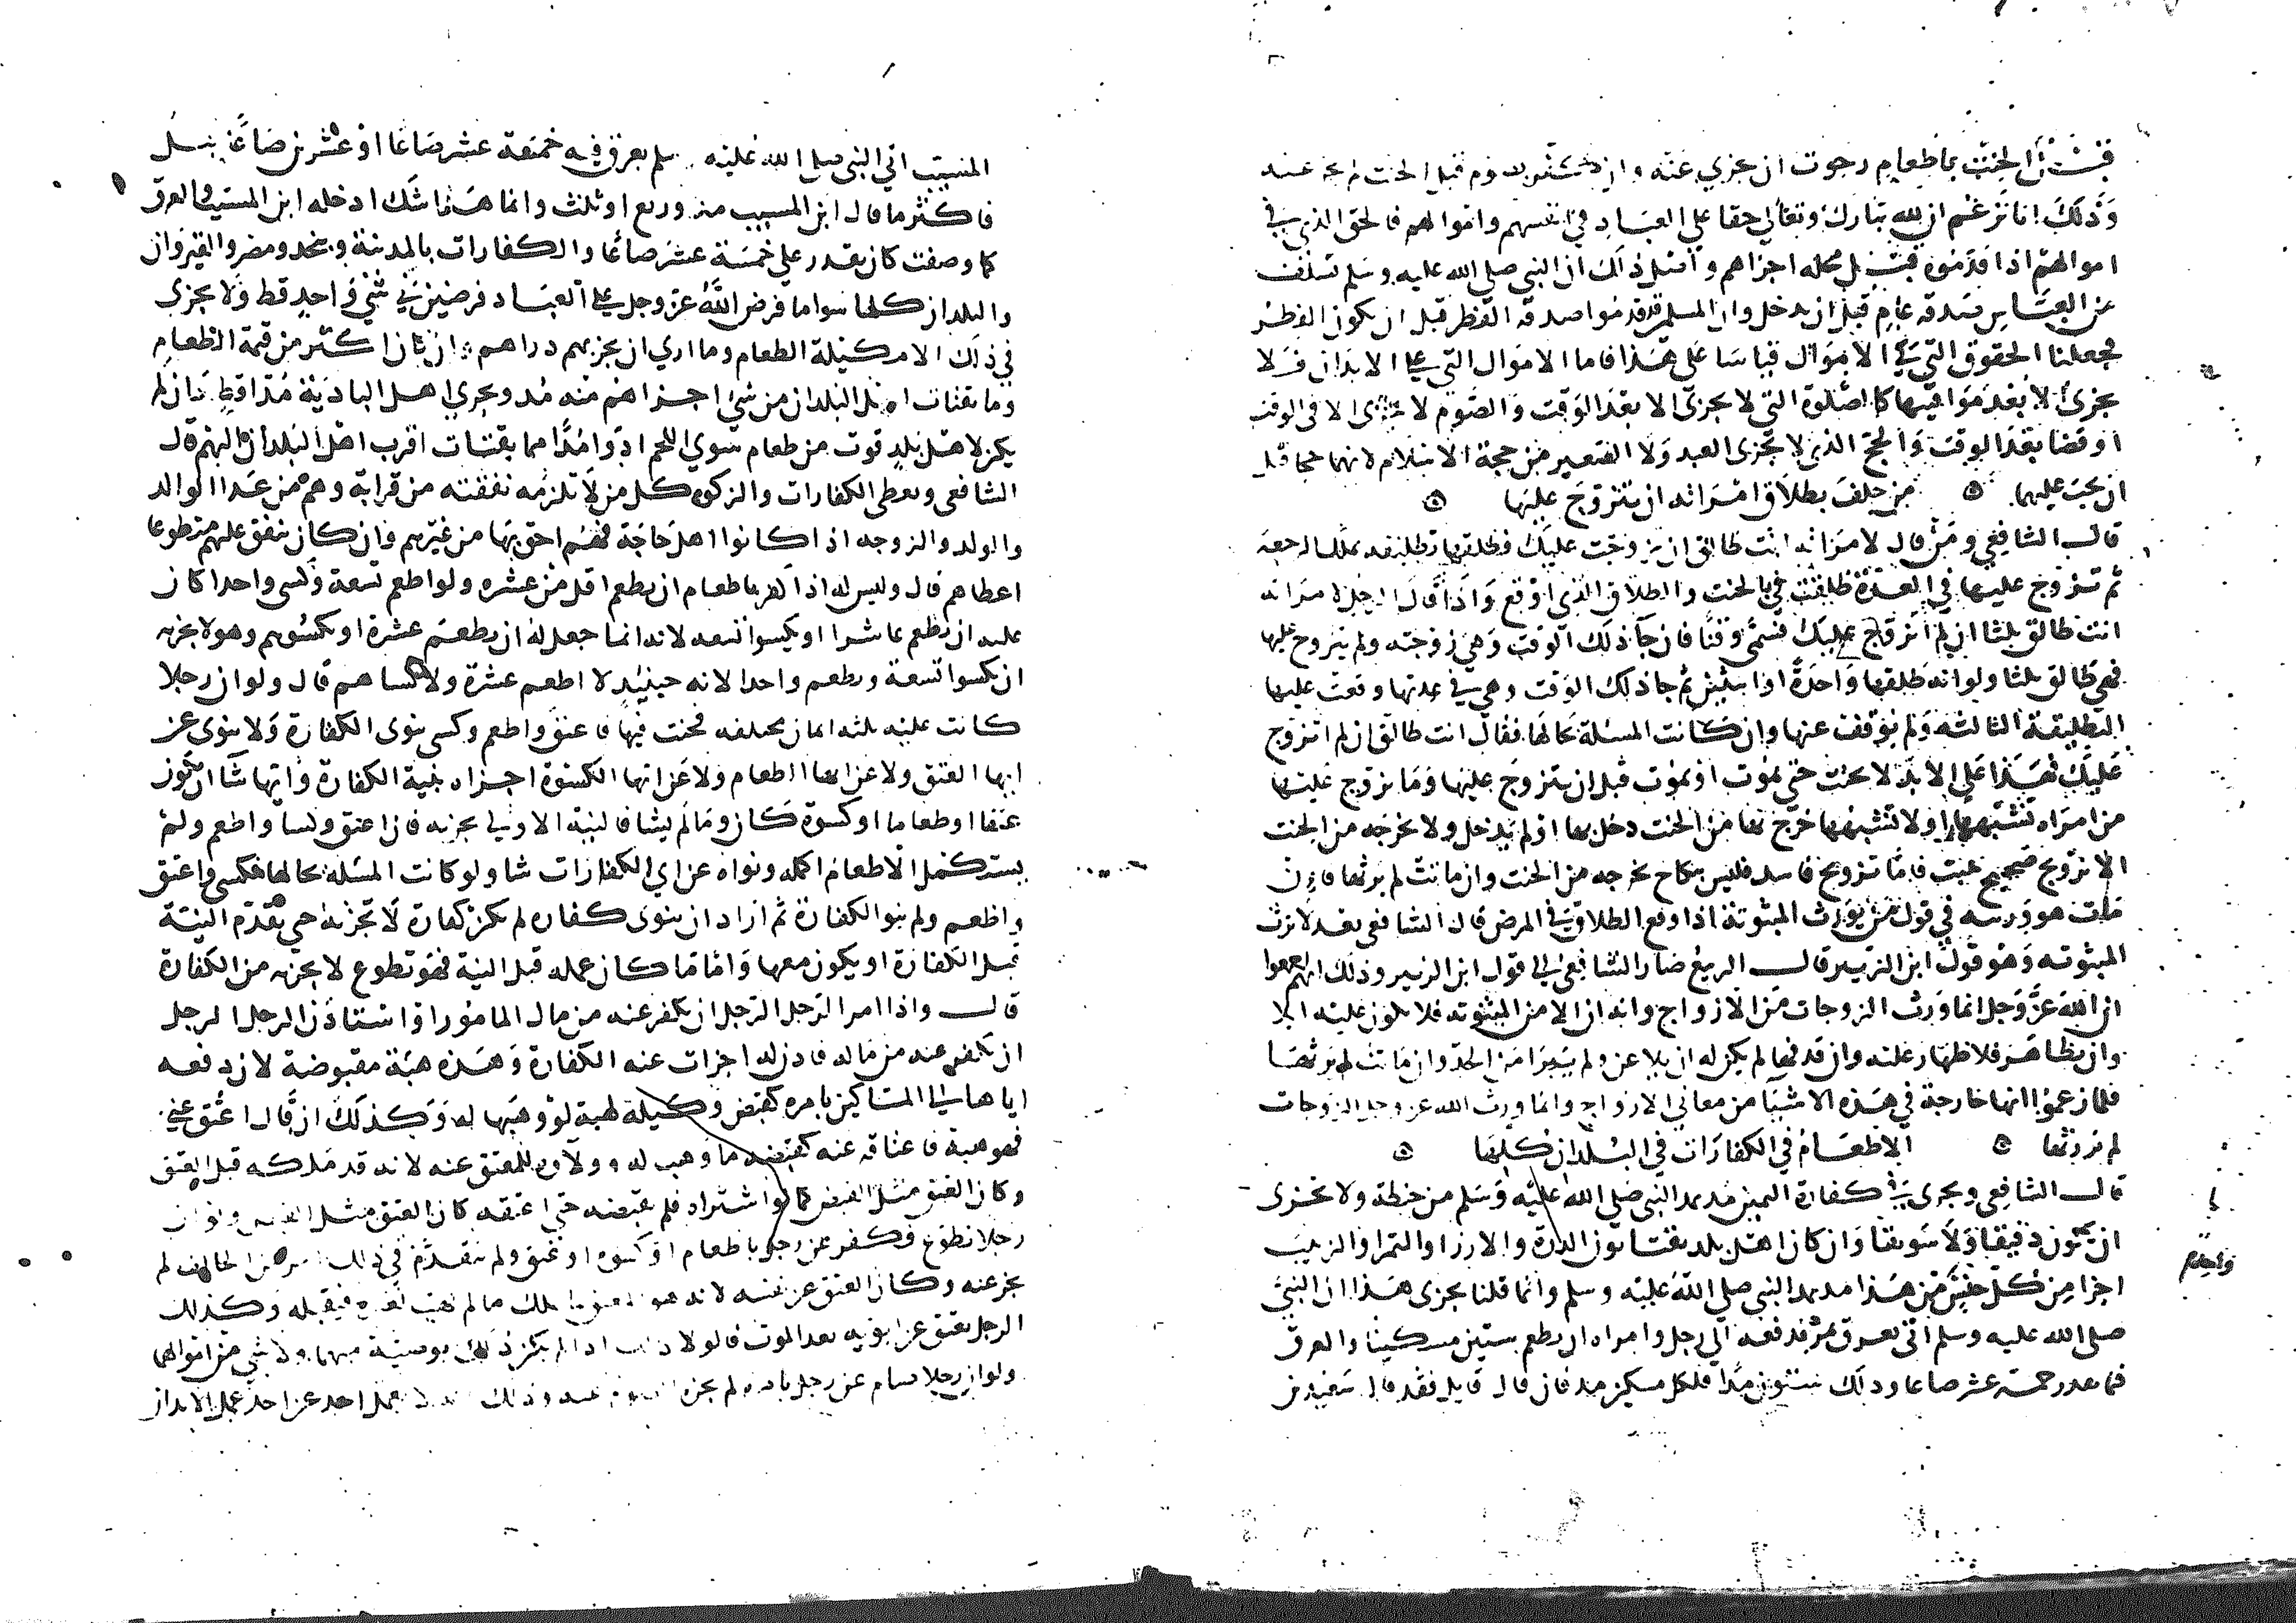 قبل الحنث باطعام رجوت ان يجزي عنه وان كفر بصوم قبل الحنث لم يجز عنه
وذلك انا نزعم ان لله تبارك وتعالى حقا على العباد في انفسهم واموالهم فالحق الذي في
اموالهم اذا قدموه قبل محله اجزاهم واصل ذلك ان النبي صلى الله عليه وسلم تسلف
من العباس صدقة عام قبل ان يدخل وان المسلمين قد قدموا صدقة الفطر قبل ان يكون الفطر
فجعلنا الحقوق التي في الاموال قياسا على هذا فاما الاموال التي على الابدان فلا
يجزئ الا بعد مواقيتها كالصلوة التي لا يجزئ الا بعد الوقت والصوم لا يجزى الا في الوقت
او قضا بعد الوقت والحج الذي لا يجزى العبد ولا الصغير من حجة الاسلام لانهما حجا قبل
ان يجب عليهما من حلف بطلاق امراته ان يتزوج عليها
قال الشافعي ومن قال لامراته انت طالق ان تزوجت عليك فطلقها تطليقه يملك الرجعة
ثم تزوج عليها في العدة طلقت في بالحنث والطلاق الذي اوقع واذا قال الرجل لامراته
انت طالق ثلثا ان لم اتزوج عليك فسمى وقتا فان جا ذلك الوقت وهي زوجته ولم يتزوج عليها
فهي طالق ثلثا ولو انه طلقها واحدة او اثنتين ثم جا ذلك الوقت وهي في عدتها وقعت عليها
التطليقة الثالثة ولم يوقت عنها وان كانت المسئلة بحالها فقال انت طالق ان لم اتزوج
عليك فهذا على الابد لا يحنث حتى يموت او تموت قبل ان يتزوج عليها وما تزوج عليها
من امراه تشبهها او لا تشبهها خرج بها من الحنث دخل بها او لم يدخل ولا يخرجه من الحنث
الا تزويج صحيح يثبت فاما تزويج فاسد فليس بنكاح يخرجه من الحنث وان ماتت لم يرثها وان
مات هو ورثته في قول من يورث المبتوتة اذا وقع الطلاق في المرض قال الشافعي بعد لا ترث
المبتوته وهو قول ابن الزبير قال الربيع صار الشافعي الى قول ابن الزبير وذلك انهم اجمعوا
ان الله عز وجل انما ورث الزوجات من الازواج وانه ان الا من المبتوته فلا يكون عليه ايلا
وان يظاهر فلا ظهار عليه وان قذفها لم يكن له ان يلاعن ولم يبرا من الحد وان ماتت لم يرثها
فلما زعموا انها خارجة في هذه الاشيا من معاني الازواج وانما ورث الله عز وجل الزوجات
لم نورثها الاطعام في الكفارات في البلدان كلها
قال الشافعي ويجزى في كفارة اليمين مد بمد النبي صلى الله عليه وسلم من حنطة ولا يجزى
ان يكون دقيقا ولا سويقا وان كان اهل بلد يقتاتون الذرة والارز او التمر او الزبيب
اجزا من كل جنس من هذا مد بمد النبي صلى الله عليه وسلم وانما قلنا يجزى هذا ان النبي
صلى الله عليه وسلم اتى بعرق تمر فدفعه الى رجل وامراه ان يطعم ستين مسكينا والعرق
فيما يقدر خمسة عشر صاعا وذلك ستون مدا فلكل مسكين مد فان قال قايل فقد قال سعيد بن
واحده
المسيب اتي النبي صلى الله عليه وسلم بعرق فيه خمسة عشر صاعا او عشرين صاعا قيل
فاكثر ما قال ابن المسيب مد وربع او ثلث وانما هذا شك ادخله ابن المسيب والعرق
كما وصفت كان يقدر على خمسة عشر صاعا والكفارات بالمدينة وبنجد ومصر والقيروان
والبلدان كلها سوا ما فرض الله عز وجل على العباد فرضين في شي واحد قط ولا يجزى
في ذلك الا مكيلة الطعام وما ارى ان يجزيهم دراهم وان كان اكثر من قيمة الطعام
وما يقتات اهل البلدان من شي اجزاهم منه مد ويجزي اهل البادية مد اقط فان لم
يكن لاهل بلد قوت من طعام سوي اللحم ادوا مدا مما يقتات اقرب اهل البلدان اليهم قال
الشافعي ويعطى الكفارات والزكوه كل من لا تلزمه نفقته من قرابة وهم من عدا الوالد
والولد والزوجه اذا كانوا اهل حاجة فهم احق بها من غيرهم وان كان ينفق عليهم متطوعا
اعطاهم قال وليس له اذا كفر باطعام ان يطعم اقل من عشره ولو اطعم تسعة وكسى واحدا كان
عليه ان يطعم عاشرا او يكسوا تسعه لانه انما جعل له ان يطعم عشرة او يكسوهم وهو لا يجزيه
ان يكسوا تسعة ويطعم واحدا لانه حينئذ لا اطعم عشرة ولا كساهم قال ولو ان رجلا
كانت عليه ثلثه ايمان مختلفه فحنث فيها فاعتق واطعم وكسى ينوى الكفارة ولا ينوى عن
ايها العتق ولا عن ايها الاطعام ولا عن ايها الكسوة اجزاه بنية الكفارة وايها شا ان تكون
عتقا او طعاما او كسوة كان وما لم يشا فالنية الاولى تجزيه فان اعتق وكسا واطعم ولم
يستكمل الاطعام اكمله ونواه عن اي الكفارات شا ولو كانت المسئلة بحالها فكسى واعتق
واطعم ولم ينو الكفارة ثم اراد ان ينوى كفاره لم يكن كفارة لا تجزئه حتى يقدم النية
قبل الكفارة او يكون معها واما ما كان عمله قبل النية فهو تطوع لا يجزيه من الكفارة
قال واذا امر الرجل الرجل ان يكفر عنه من مال المامور او استاذن الرجل الرجل
ان يكفر عنه من ماله فاذن له اجزات عنه الكفارة وهذه هبة مقبوضة لان دفعه
اياها الى المساكين بامره كقبض وكيله لهبة لو وهبها له وكذلك ان قال اعتق عني
فهو هبة فاعتاقه عنه كقبضه ما وهب له وولاوه للمعتق عنه لانه قد ملكه قبل العتق
وكان العتق مثل القبض كما لو اشتراه فلم يقبضه حتى اعتقه كان العتق مثل القبض ولو ان
رجلا تطوع فكفر عن رجل باطعام او كسوه او عتق ولم يتقدم في ذلك الحالف لم
يجز عنه وكان العتق عن نفسه لانه هو المعتق ما يملك ما لم يهب لغيره فيقبله وكذلك
الرجل يعتق عن ابويه بعد الموت فالولا له اذا لم يكن ذلك بوصية منهما ولا شي من اموالهما
ولو ان رجلا صام عن رجل بامره لم يجزه الصوم عنه وذلك انه لا يعمل احد عن احد عمل الابدان